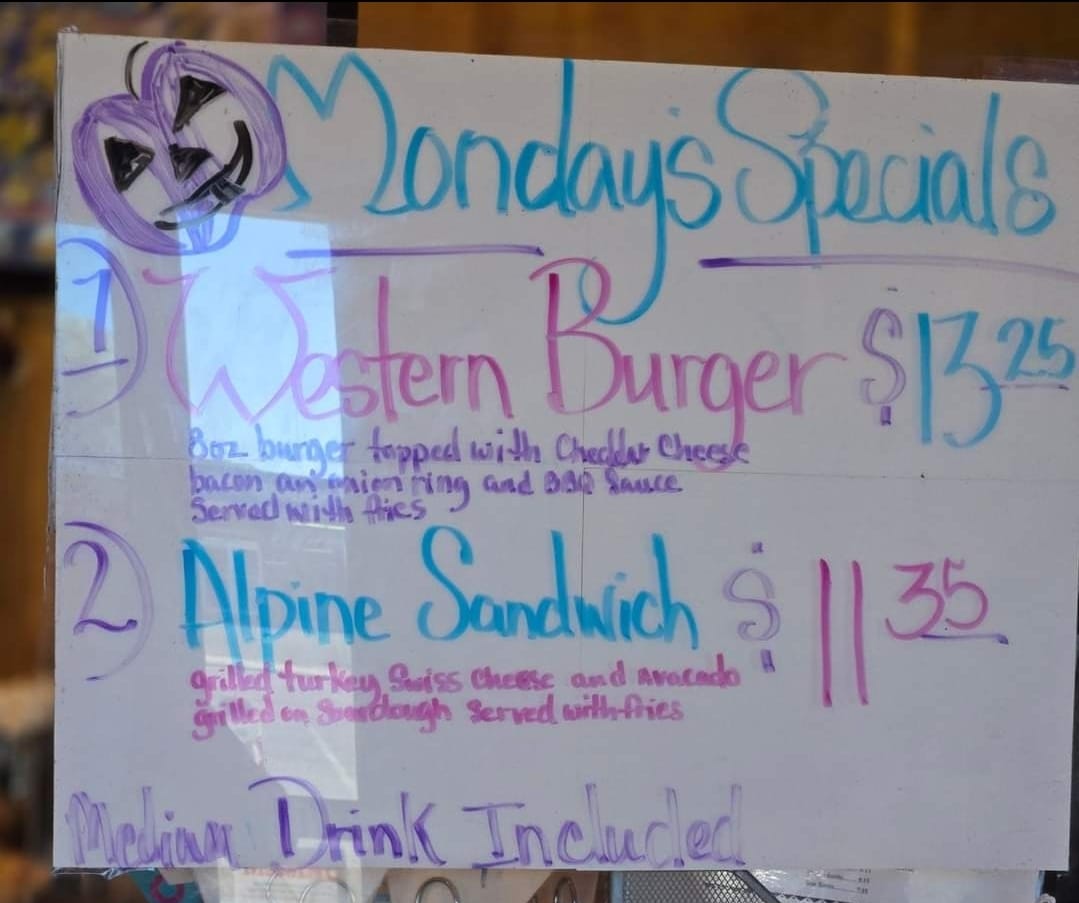 Monday's Specials
1) Western Burger $13.25
8oz burger topped with Cheddar Cheese
bacon an onion ring and BBQ Sauce
Served with fries
2) Alpine Sandwich $11 35
grilled turkey Swiss Cheese and Avacado
grilled on Sourdough Served with fries
Medium Drink Included